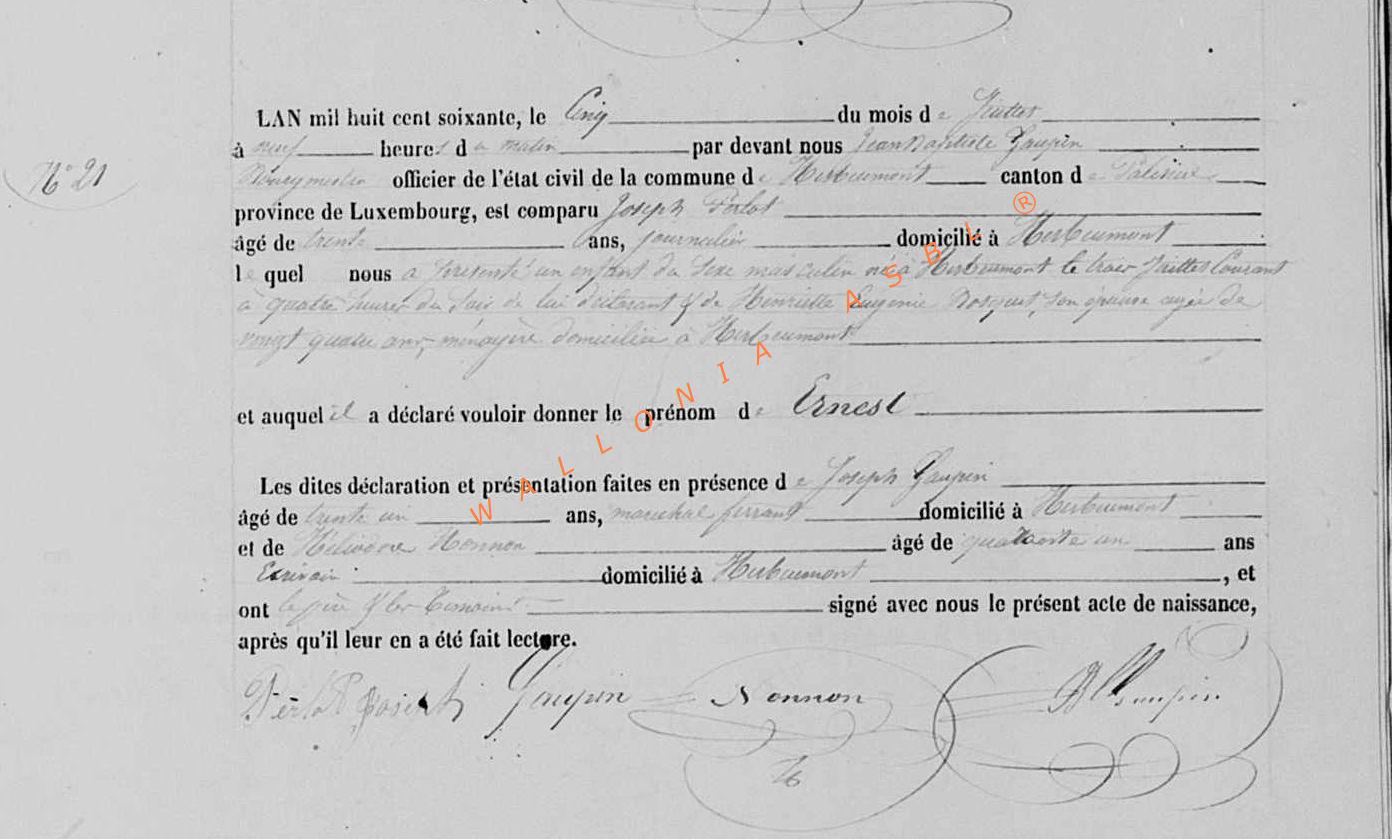 LAN mil huit cent soixante, le Cinq du mois de Juillet
N° 21
à neuf heures du matin par devant nous Jean Baptiste Gaupin
Bourgmestre officier de l'état civil de la commune de Herbeumont canton de Paliseul
province de Luxembourg, est comparu Joseph Perlot
âgé de trente ans, journalier domicilié à Herbeumont
lequel nous a présenté un enfant du sexe masculin né à Herbeumont le trois Juillet Courant
à quatre heures du soir de lui déclarant & de Henriette Eugenie Bosquet, son épouse agée de
vingt quatre ans, ménagère domiciliée à Herbeumont
et auquel il a déclaré vouloir donner le prénom de Ernest
Les dites déclaration et présentation faites en présence de Joseph Gaupin
âgé de trente un ans, marechal ferrant domicilié à Herbeumont
et de Héliodore Nonnon âgé de quarante un ans
Ecrivain domicilié à Herbeumont, et
ont le père & les temoins signé avec nous le présent acte de naissance,
après qu'il leur en a été fait lecture.
Perlot Joseph Gaupin Nonnon JB Gaupin
WALLONIA ASBL ®